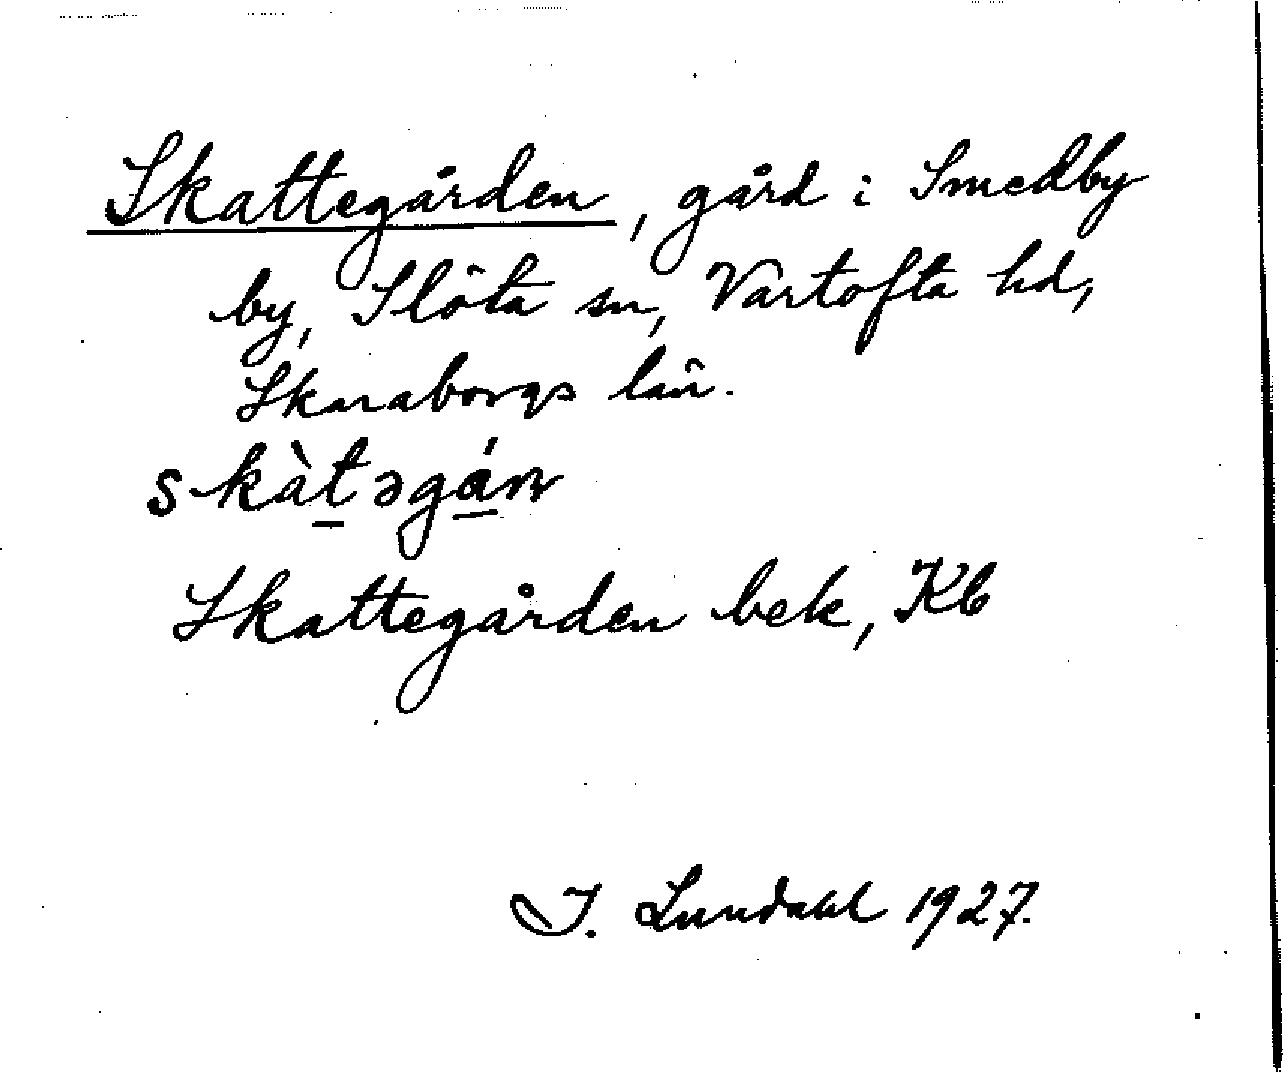 Skattegården, gård i Smedby
by, Slöta sn, Vartofta hd,
Skaraborgs län.
skàt̲əgá̲n
Skattegården bek, Kb
I. Lundahl 1927.